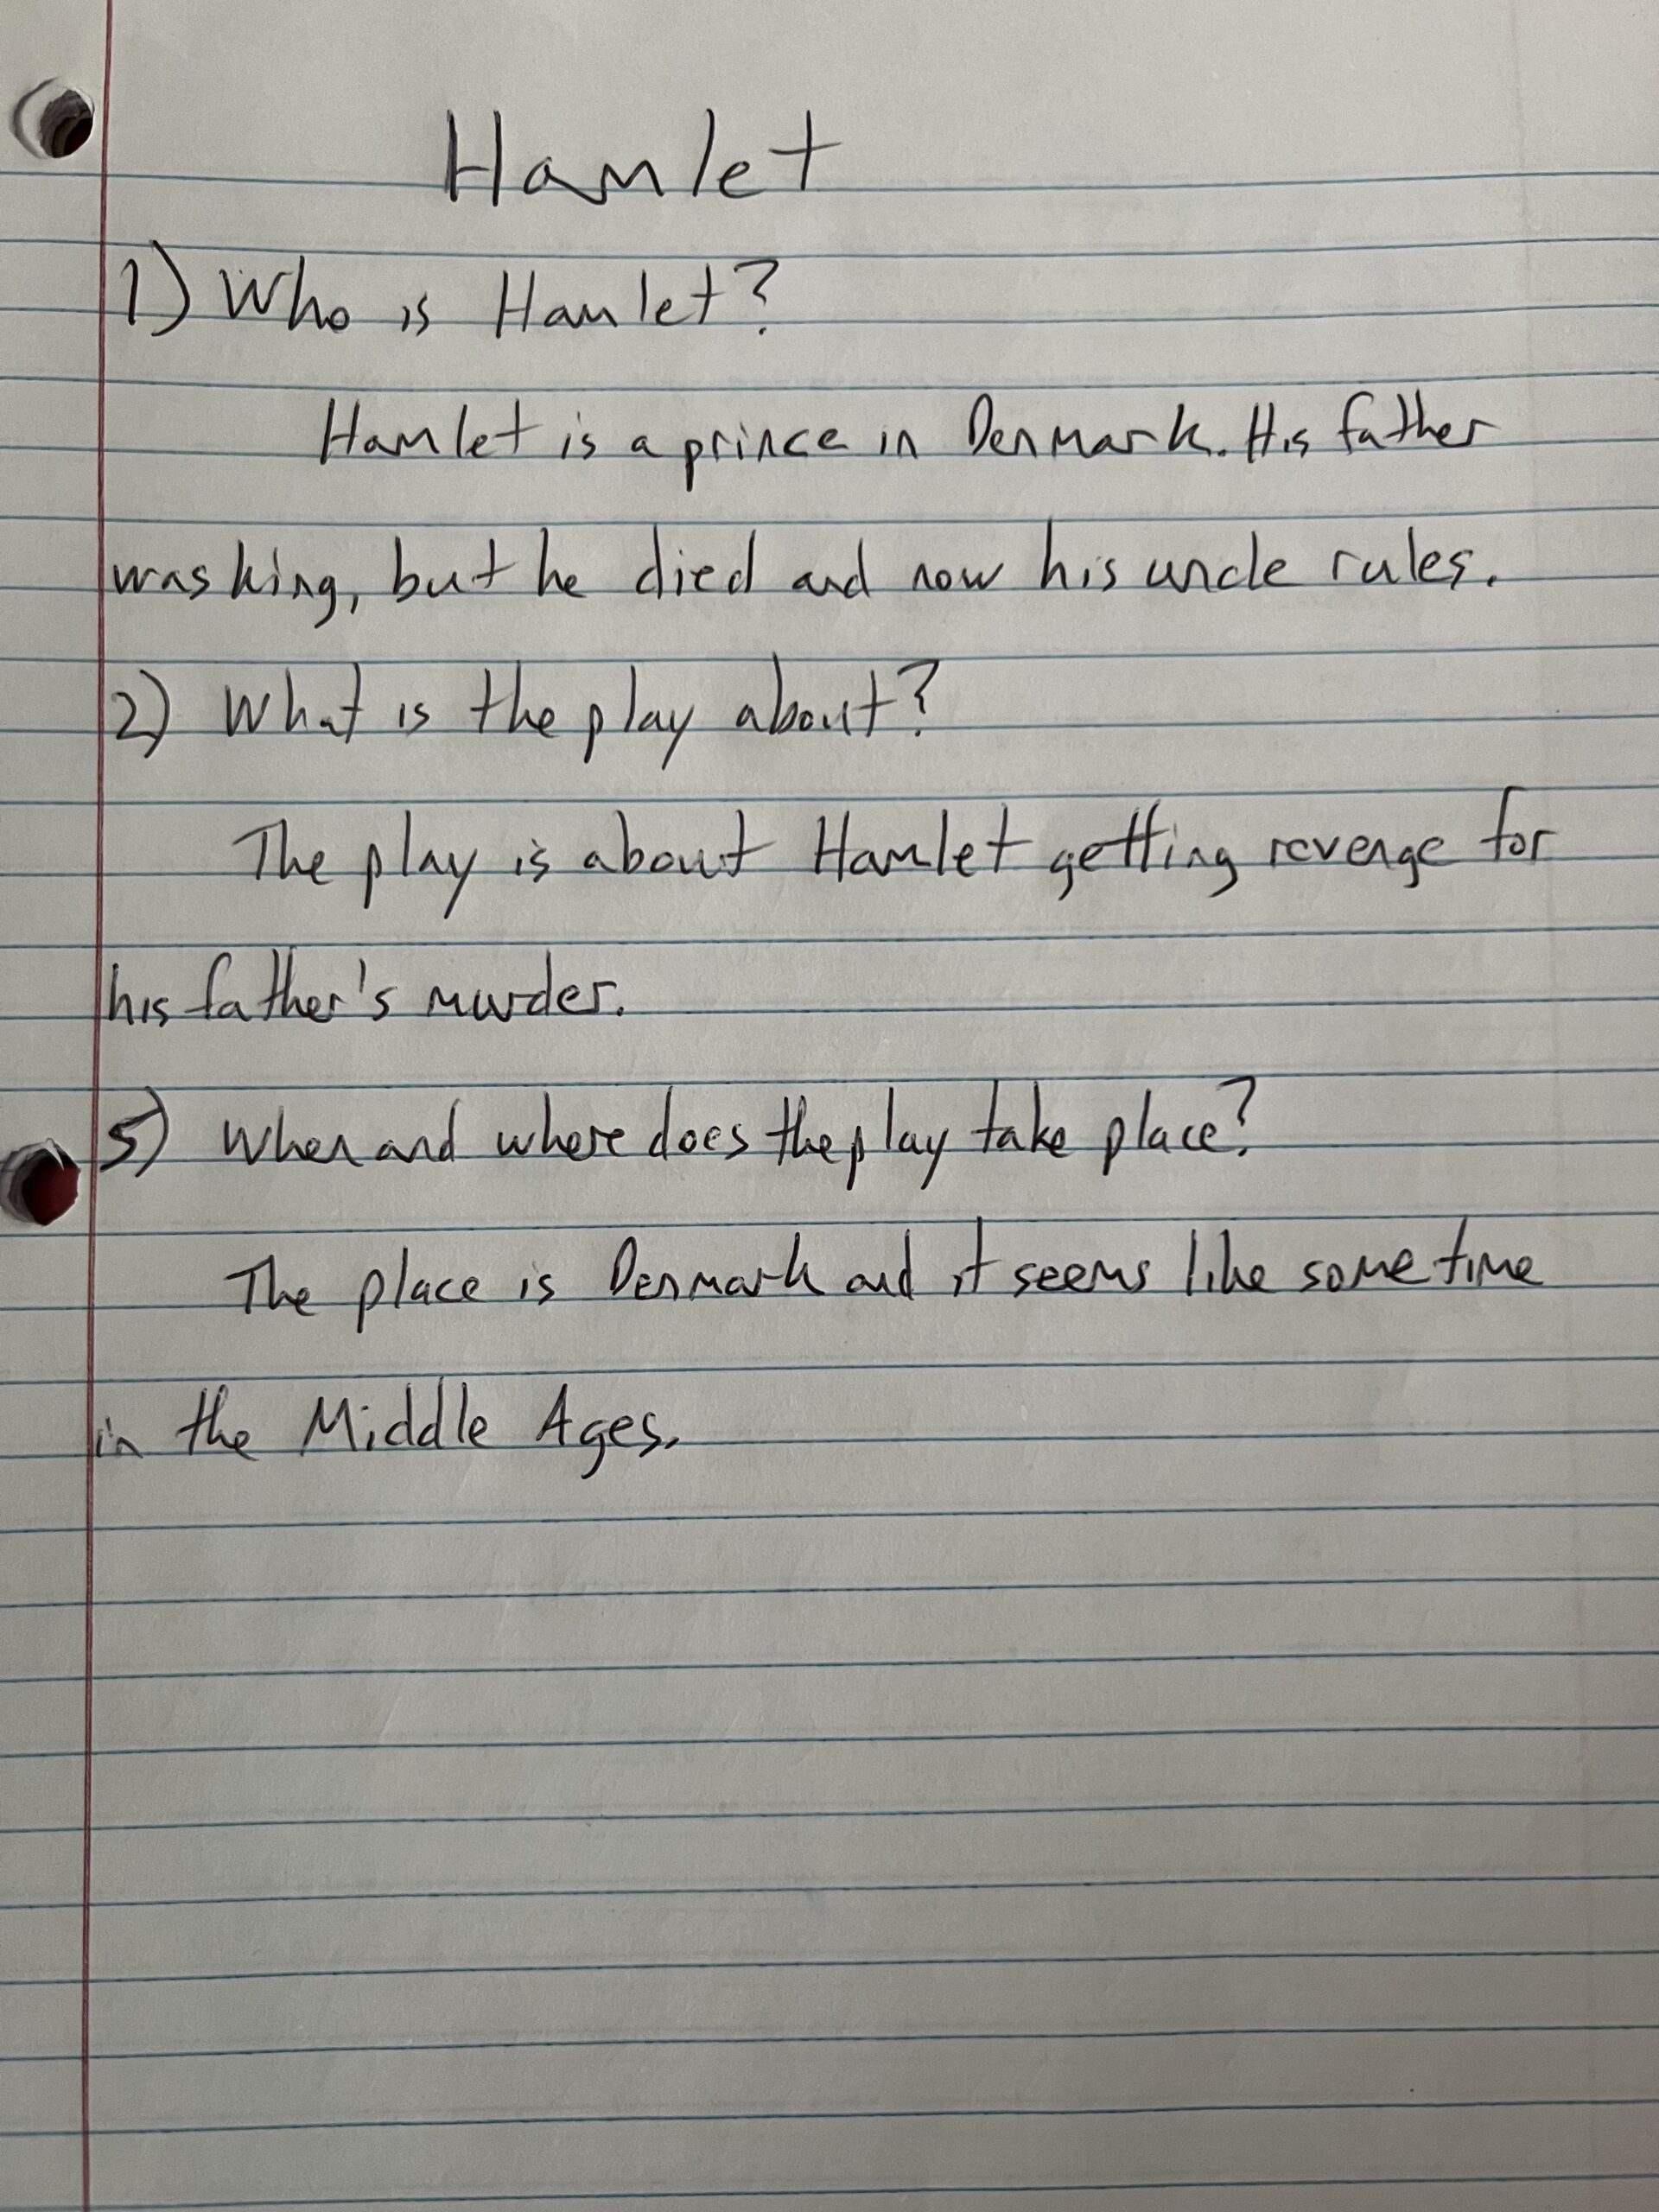 Hamlet
1) Who is Hamlet?
Hamlet is a prince in Denmark. His father
was king, but he died and now his uncle rules.
2) What is the play about?
The play is about Hamlet getting revenge for
his father's murder.
5) When and where does the play take place?
The place is Denmark and it seems like sometime
in the Middle Ages.